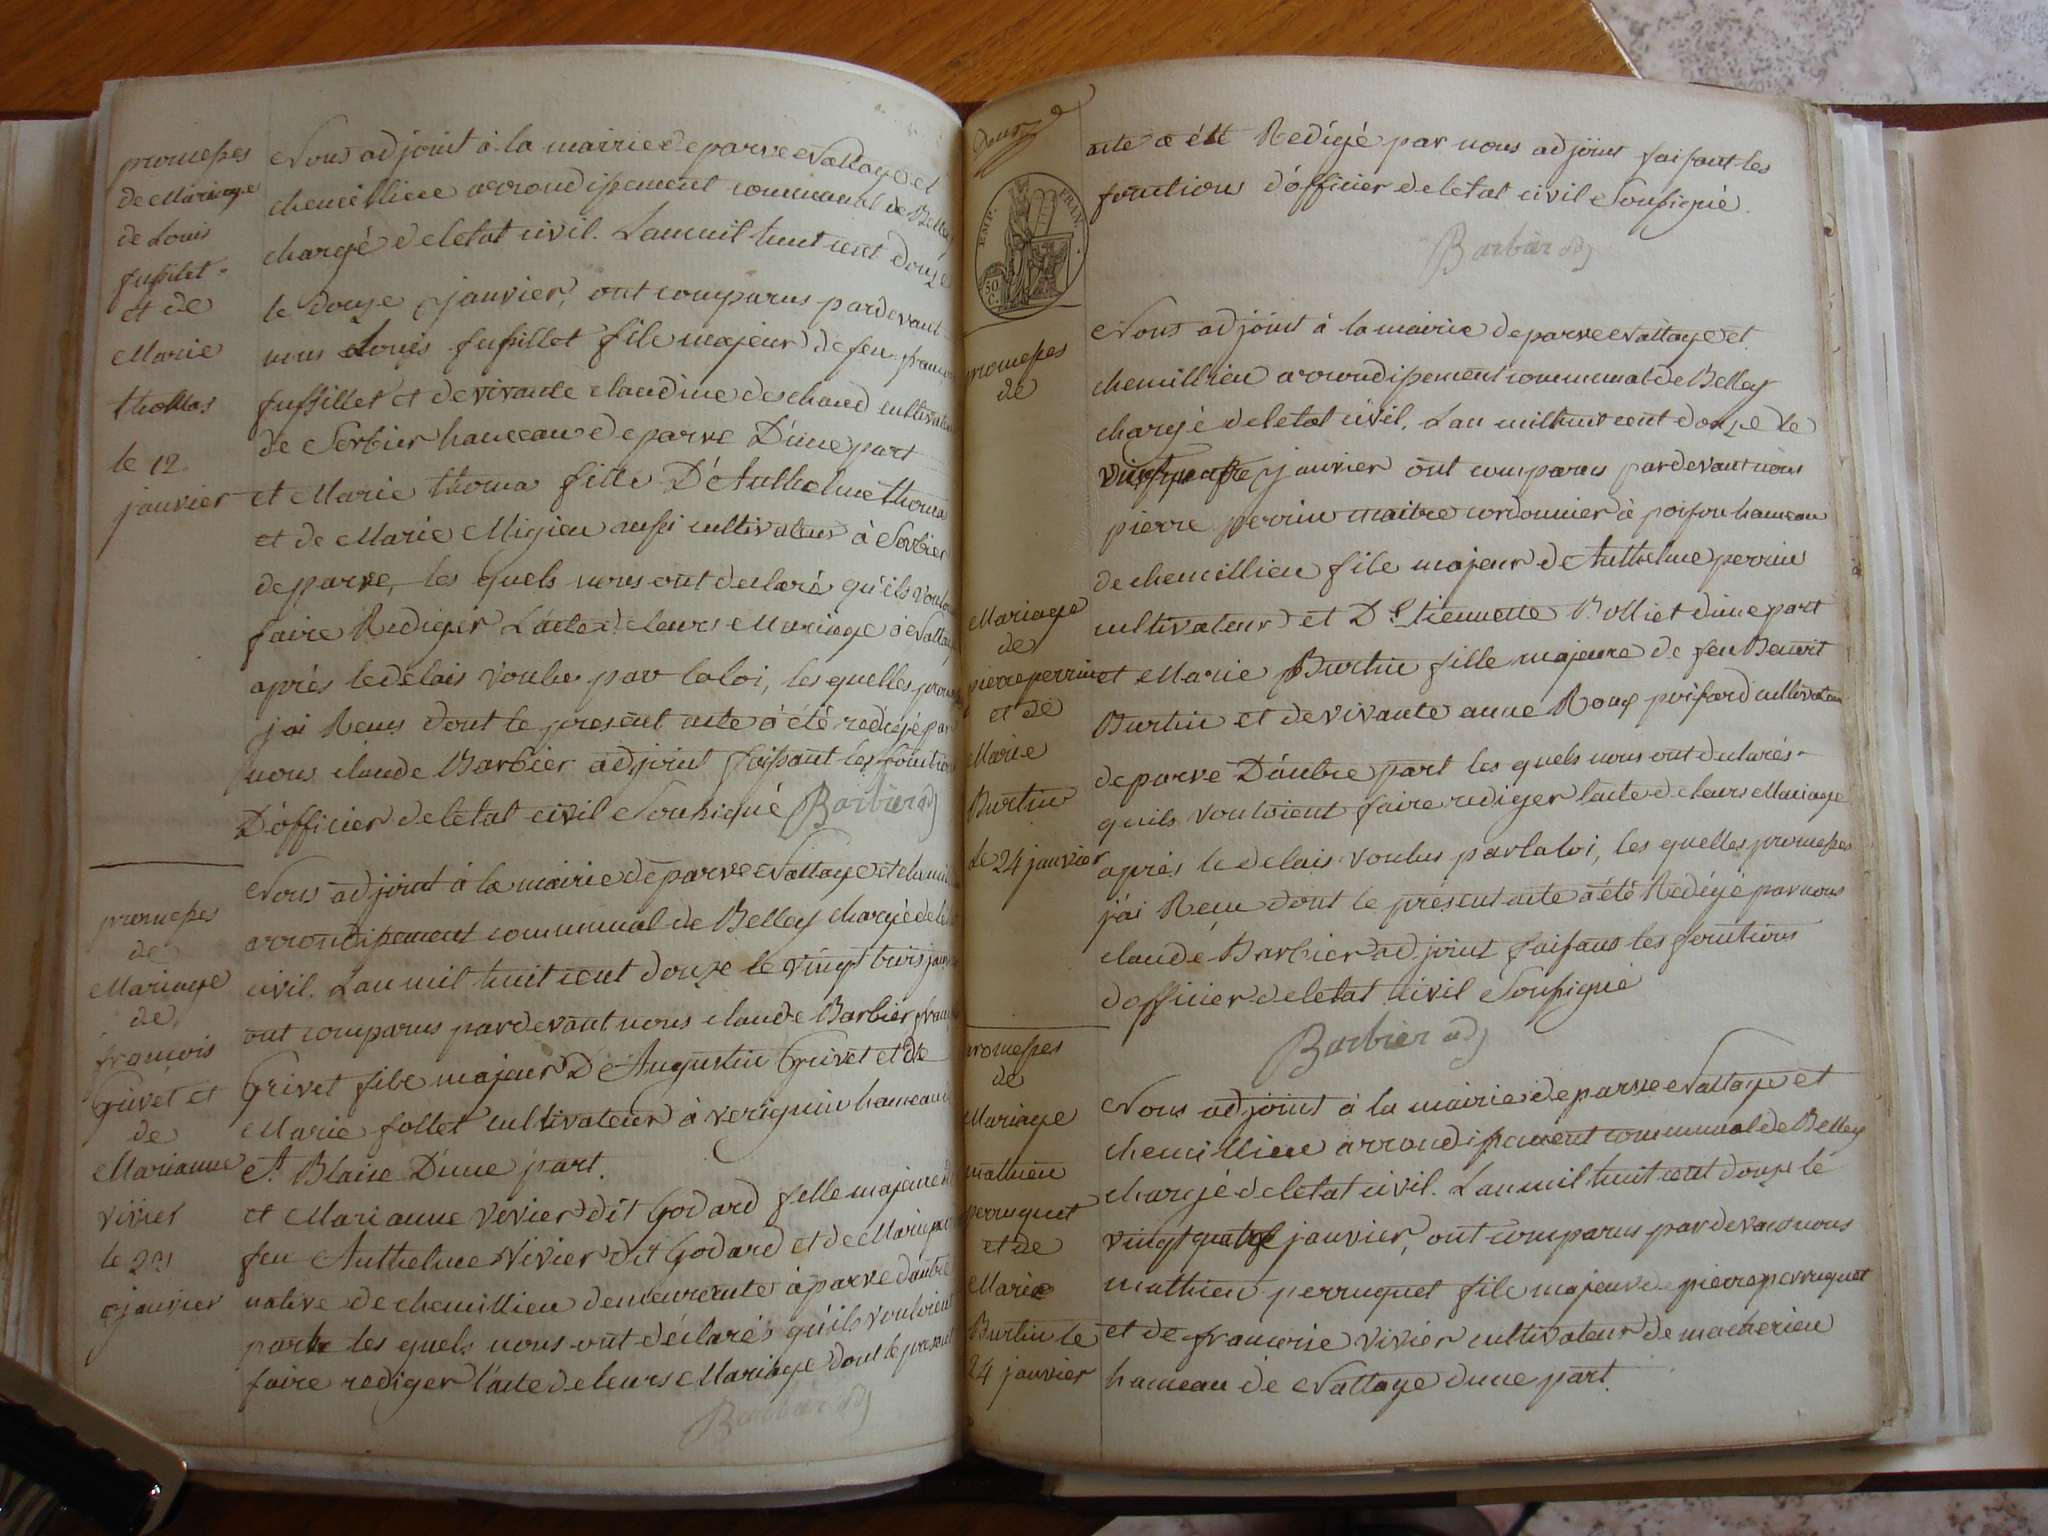 promesses
de Mariage
de Louis
fussilet
et de
Marie
thomas
le 12
janvier
Nous adjoint à la mairie de parve Nattage et
chemillieu arrondissement communal de Belley
chargé de letat civil. Lan mil huit cent douze
le douze janvier, ont comparus pardevant
nous Louis fussillet fils majeur de feu francois
fussillet et de vivante claudine deschand cultivateur
de Sorbier hameau de parve D'une part
et Marie thoma fille D'Anthelme thoma
et de Marie Migieu aussi cultivateur à Sorbier
de parve, les quels nous ont declaré qu'ils vouloient
faire Rediger L'acte de leurs Mariage à Nattage
après le delais voulu par la loi, les quelles promesses
j'ai Reçus dont le present acte a été redigé par
nous claude Barbier adjoint faisant les fonctions
D'officier de letat civil Soussigné Barbier adj
promesses
de
Mariage
de
françois
Grivet et
de
Marianne
vivier
le 23
janvier
Nous adjoint à la mairie de parve Nattage et chemillieu
arrondissement communal de Belley chargé de letat
civil. Lan mil huit cent douze le vingt trois janvier
ont comparus pardevant nous claude Barbier francois
Grivet fils majeur D'Augustin Grivet et de
Marie follet cultivateur à verignin hameau de
St Blaise D'une part.
et Marianne Vivier dit Godard fille majeure de
feu Anthelme Vivier dit Godard et de Marie
native de chemillieu demeurante à parve d'autre
parte les quels nous ont déclarés qu'ils vouloient
faire rediger l'acte de leurs Mariage dont le present
Barbier adj
Douze
EMP. FRAN.
50 C.
acte a été Redigé par nous adjoint faisant les
fonctions d'officier de letat civil Soussigné.
Barbier adj
promesses
de
Mariage
de
pierre perrin
et de
Marie
Burtin
le 24 janvier
Nous adjoint à la mairie de parve Nattage et
chemillieu arrondissement communal de Belley
chargé de letat civil. Lan mil huit cent douze le
vingt quatre janvier ont comparus pardevant nous
pierre perrin maitre cordonnier à poison hameau
de chemillieu fils majeur d'Anthelme perrin
cultivateur et D'Etiennette Volliet d'une part
et Marie Burtin fille majeure de feu Benoit
Burtin et de vivante anne Roux poisard cultivateur
de parve D'autre part les quels nous ont declarés
quils vouloient faire rediger lacte de leurs Mariage
après le delais voulus par la loi, les quelles promesses
j'ai Reçu dont le présent acte a été Redigé par nous
claude Barbier adjoint faisant les fonctions
d'officier de letat civil Soussigné
Barbier adj
promesses
de
Mariage
mathieu
perruquet
et de
Marie
Burtin le
24 janvier
Nous adjoint à la mairie de parve Nattage et
chemillieu arrondissement communal de Belley
chargé de letat civil. Lan mil huit cent douze le
vingt quatre janvier, ont comparus pardevant nous
mathieu perruquet fils majeur de pierre perruquet
et de francoise vivier cultivateur de macherieu
hameau de Nattage dune part.